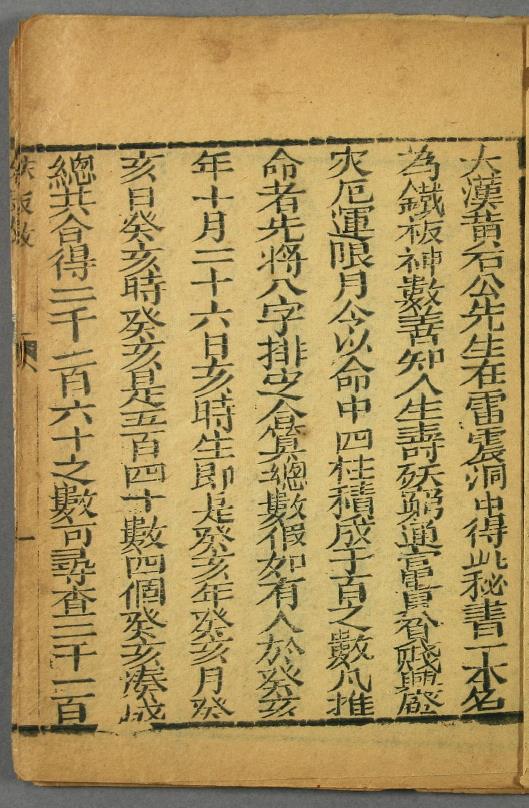 大漢黃石公先生在雷震洞中得此秘書一本名
為鐵板神數善知人生壽殀窮通富貴貧賤興盛
灾厄運限月令以命中四柱積成千百之數凡推
命者先將八字排定合算總數假如有人於癸亥
年十月二十六日亥時生即是癸亥年癸亥月癸
亥日癸亥時癸亥是五百四十數四個癸亥湊成
總共合得二千一百六十之數可尋查二千一百
鉄板数
一